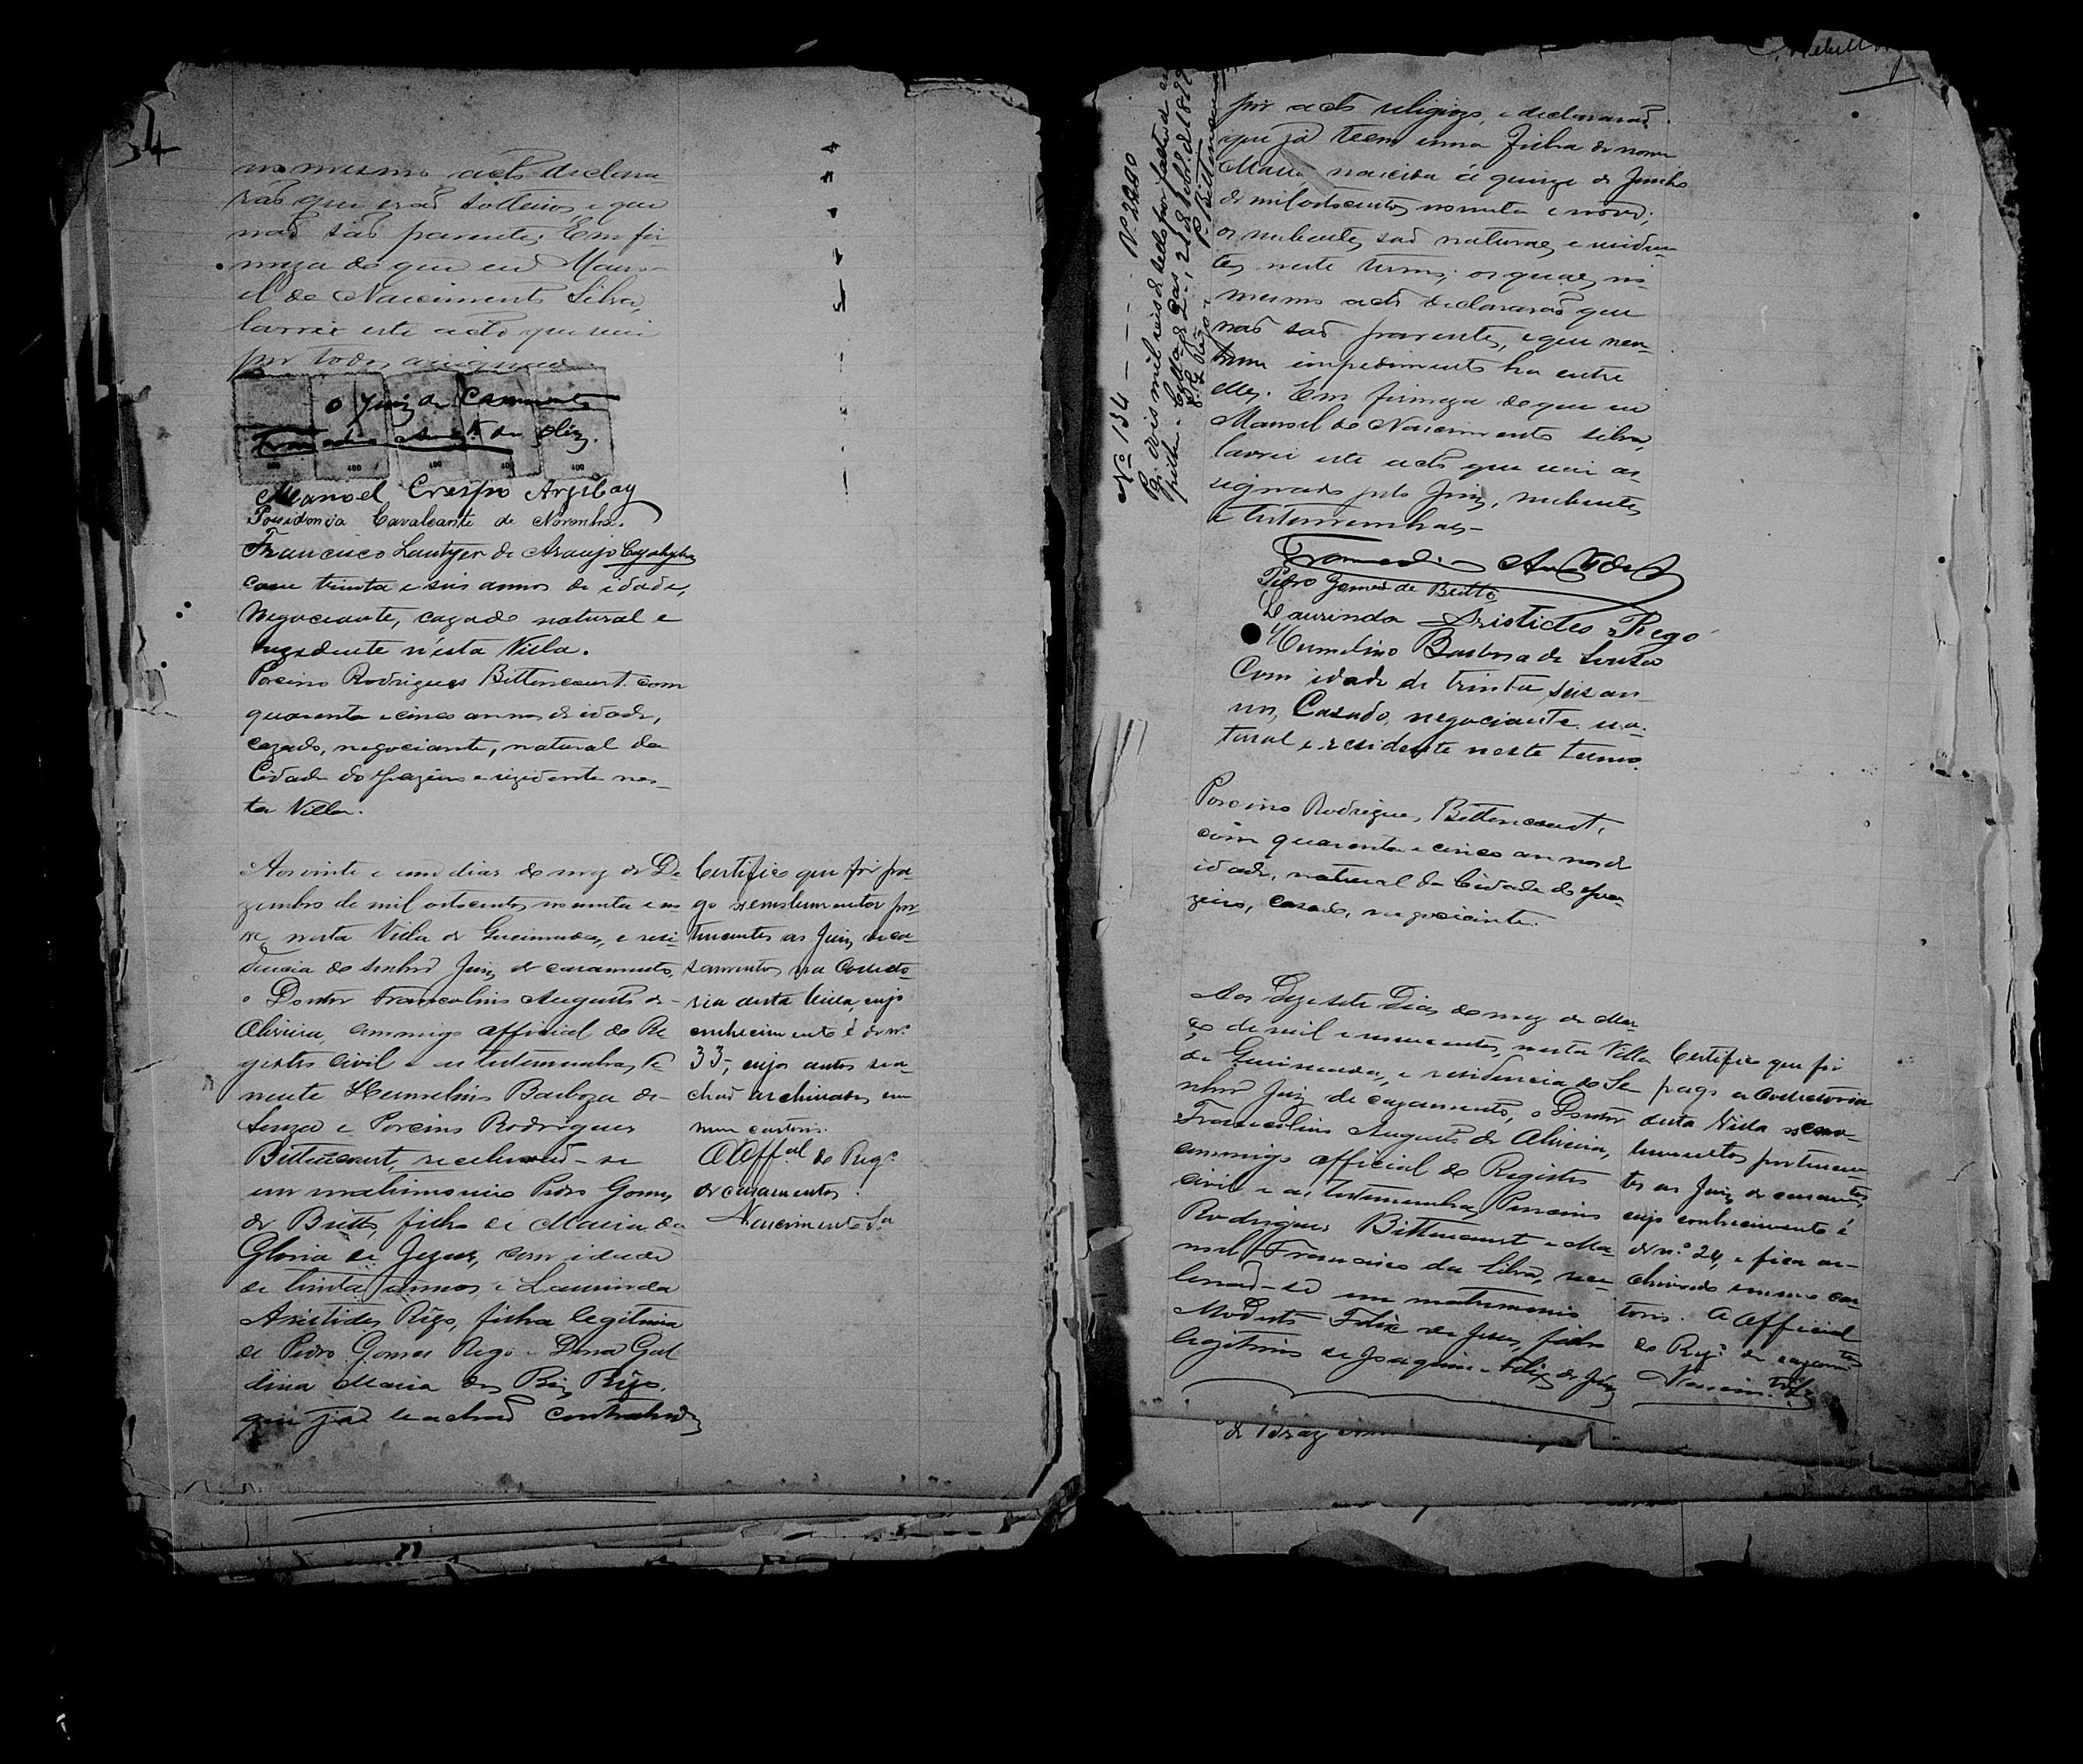 34
no mesmo acto declara-
rão que erão solteiros e que
não são parentes. Em fir
meza do que eu Mano-
el do Nascimento Silva,
lavrei este acto que vai
por todos assignado
O Juiz de Casamentos
400 400 400 400
Manoel Crespo Argibay
Possidonia Cavalcante de Noronha.
Francisco Lantyer de Araujo
com trinta e seis annos de idade,
Negociante, cazado natural e
rezidente n'esta Villa.
Porcino Rodrigues Bittencourt com
quarenta e cinco annos de idade,
cazado, negociante, natural da
Cidade do Joazeiro e rezidente nes-
ta Villa.
Aos vinte e um dias do mez de De
zembro de mil oitocentos noventa e no
ve nesta Villa de Queimadas, e resi-
dencia do senhor Juiz de casamentos,
o Doutor Francolino Augusto de
Oliveira, commigo official do Re
gistro Civil e as testemunhas, Te
nente Hermelino Barboza de
Souza e Porcino Rodrigues
Bittencourt, receberão-se
em matrimonio Pedro Gomes
de Britto, filho de Maria da
Gloria de Jezus, com idade
de trinta annos e Laurinda
Aristides Rego, filha legitima
de Pedro Gomes Rego e Dona Gal
dina Maria dos Reis Rego,
que já se achão contrahidos
Certifico que foi pa
go os emolumentos per
tencentes ao Juiz de ca-
samentos na Collecto-
ria desta Villa, cujo
conhecimento é de nº
33, cujos autos se a-
chão archivados em
meu cartorio.
O Offal do Rego
de casamentos.
Nascimento Sa
Nº 134 - - - - Nº 2$200
Pg. dois mil reis de sello por falta de es
P. Bittencourt
por acto religiozo, e declararão
que já teem uma filha de nome
Maria nascida á quinze de Junho
de mil oitocentos noventa e nove;
os nubentes são naturaes e residen-
tes neste termo; os quaes, no
mesmo acto declararão que
não são parentes, e que nen-
hum impedimento ha entre
elles. Em firmeza do que eu
Manoel do Nascimento Silva,
lavrei este acto que vai as-
signado pelo Juiz, nubentes
e testemunhas-
Pedro Gomes de Britto
Laurinda Aristides Rego
Hermelino Barbosa de Souza
Com idade de trinta seis an-
nos, Casado, negociante na-
tural e residente neste termo.
Porcino Rodrigues Bittencourt,
com quarenta e cinco annos de
idade, natural da Cidade do Joa-
zeiro, casado, negociante.
Aos Dezesete Dias do mez de Mar-
ço de mil e novecentos, nesta Villa
de Queimadas, e residencia do Se
nhor Juiz de cazamentos, o Doutor
Francolino Augusto de Oliveira,
commigo official do Registro
civil e as testemunhas, Porcino
Rodrigues Bittencourt e Ma-
noel Francisco da Silva, rece
berão-se em matrimonio
Modesto Felix de Jesus, filho
legitimo de Joaquim Felix de Jesus
Certifico que foi
pago a Collectoria
desta Villa os emo-
lumentos pertencen-
tes ao Juiz de casamtos,
cujo conhecimento é
de nº 24, e fica ar-
chivado em meu car-
torio. O Official
do Rego de cazamtos